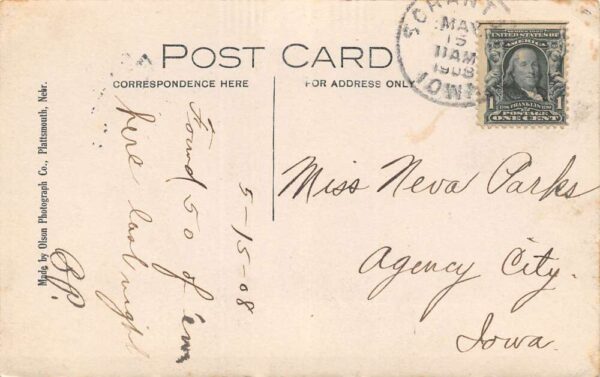 POST CARD
CORRESPONDENCE HERE
FOR ADDRESS ONLY
SCRANT
MAY
15
11AM
1908
IOWA
UNITED STATES OF
AMERICA
1 FRANKLIN 1
POSTAGE
ONE CENT
5-15-08
Found 50 of 'em
here last night
Made by Olson Photograph Co., Plattsmouth, Nebr.
Miss Neva Parks
Agency City.
Iowa.